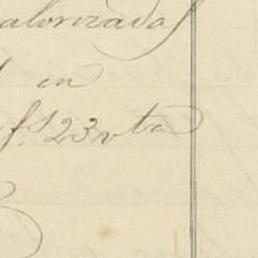 valorizadas
en
fs. 23 vta